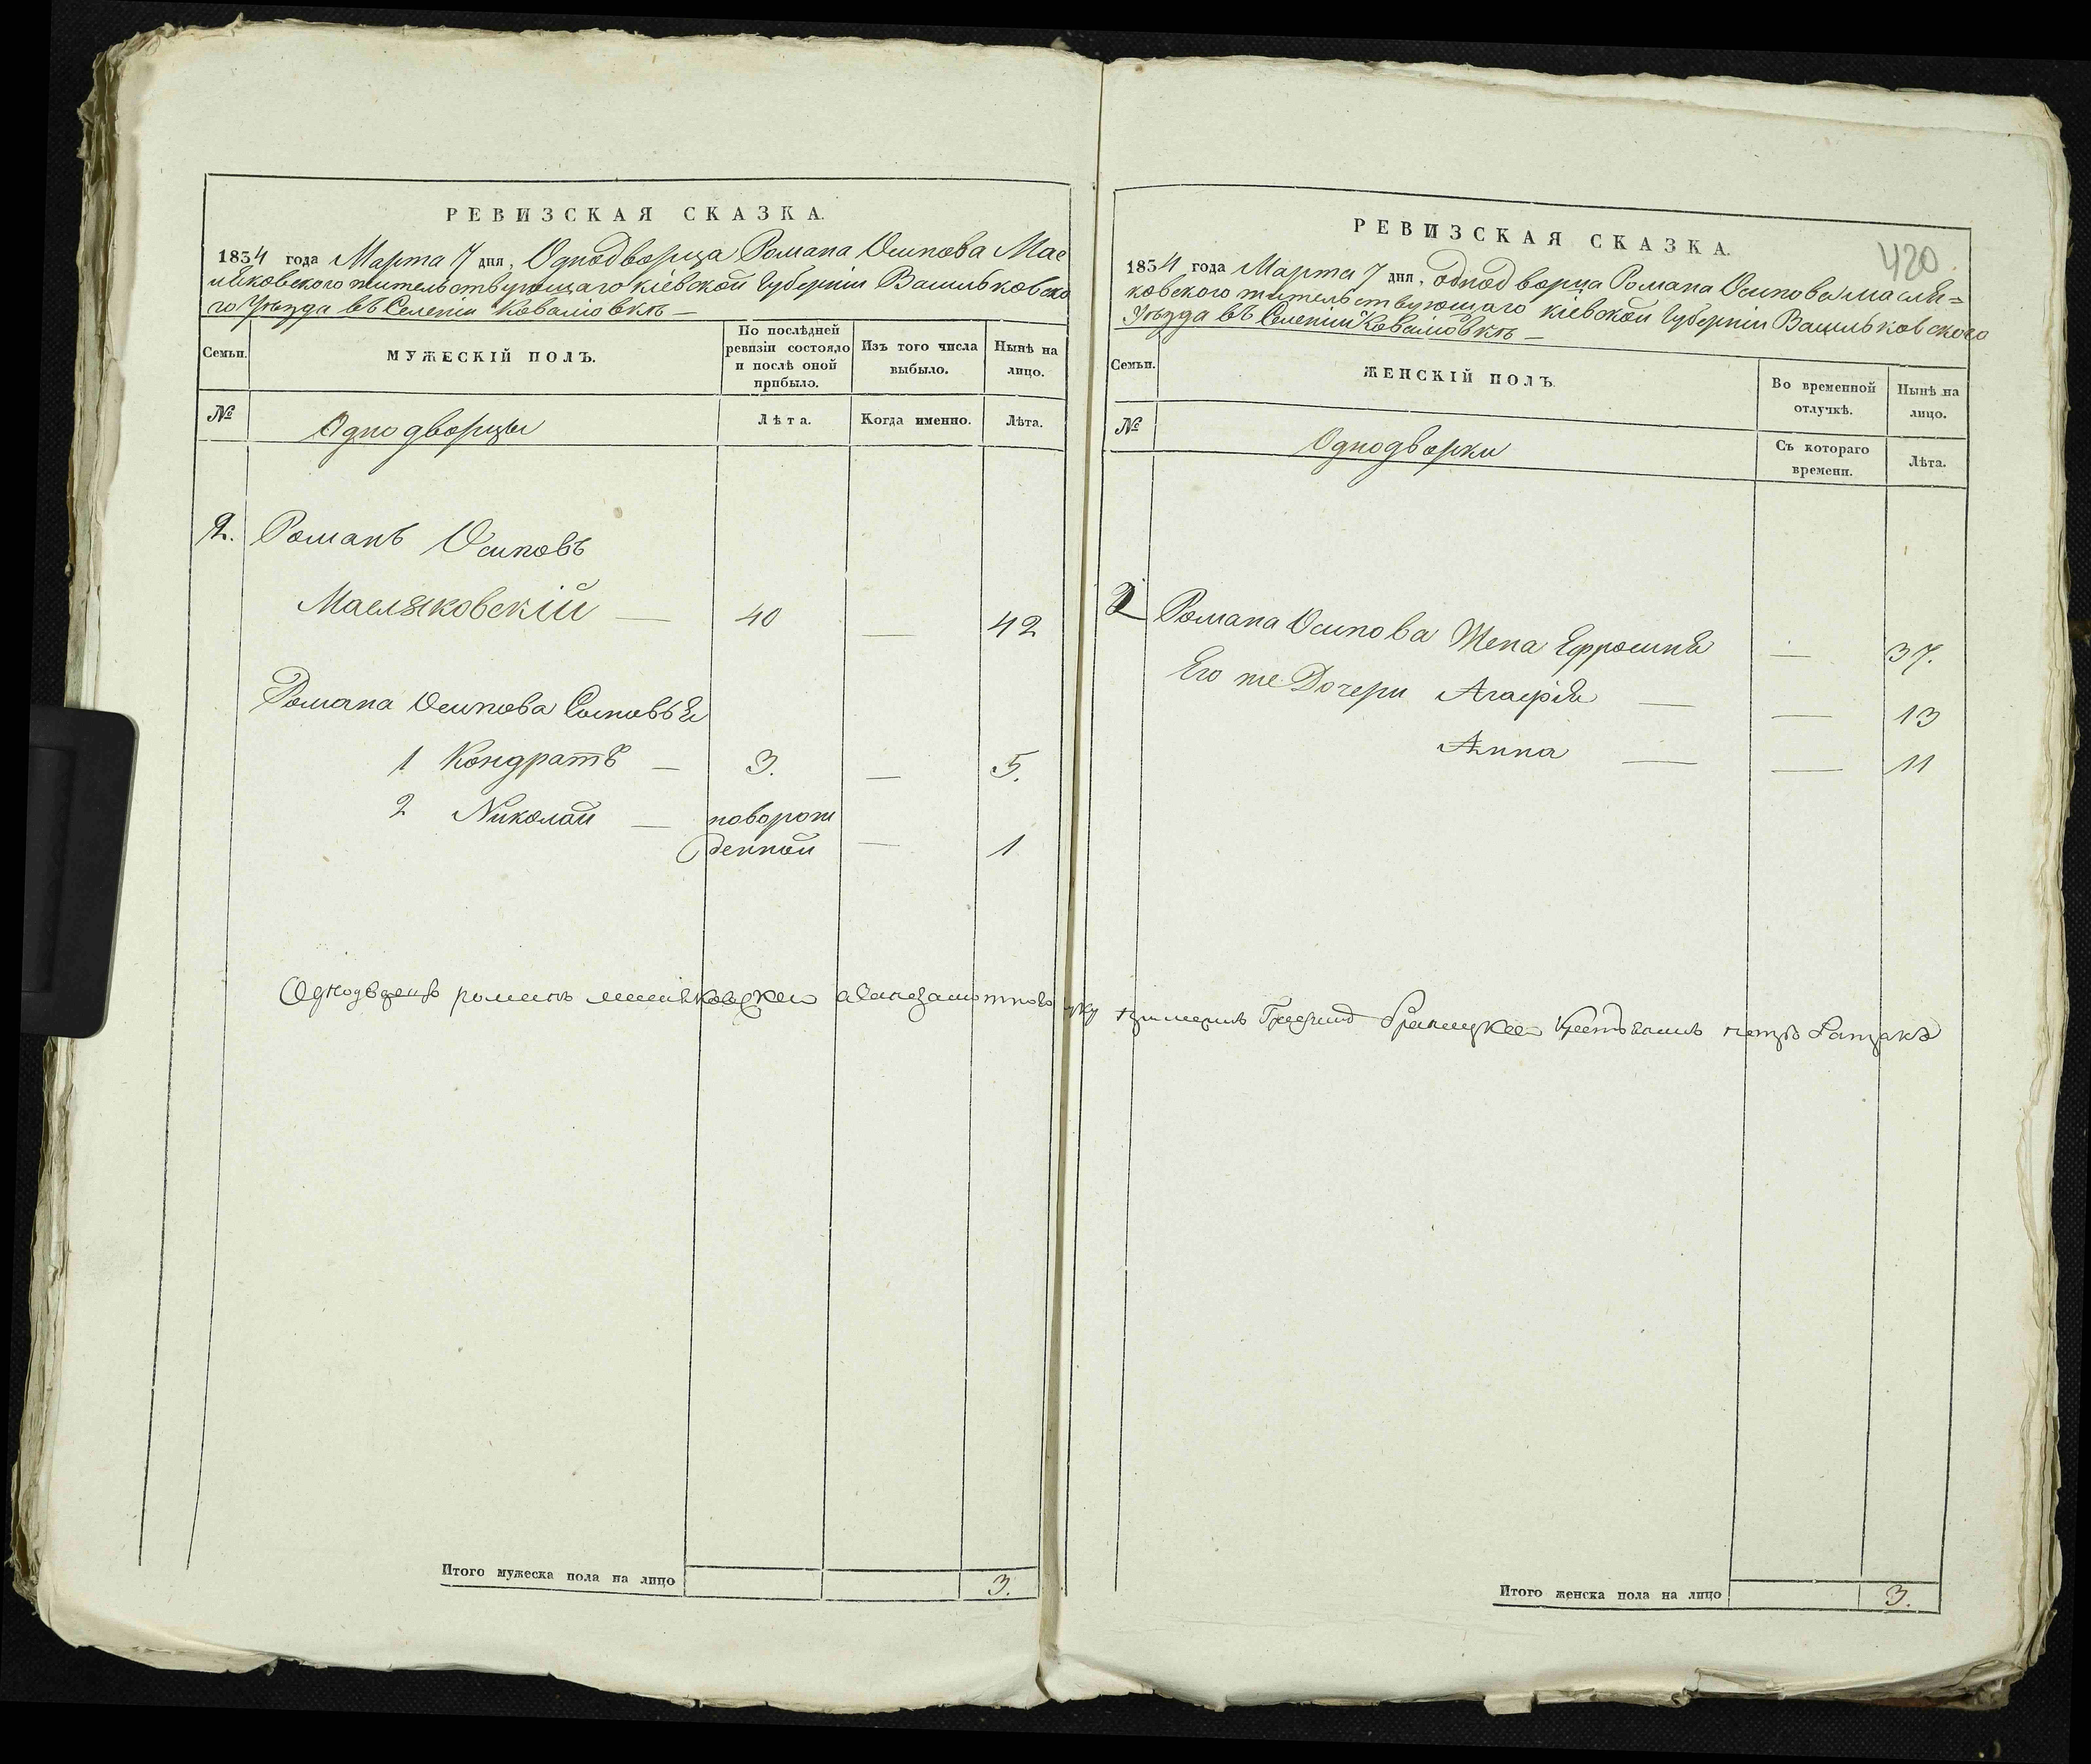 РЕВИЗСКАЯ СКАЗКА.
1834 года Марта 7 дня, Однодворца Романа Осипова Мас
ляковского жительствующаго Кіевской Губерніи Васильковско
го Уѣзда въ Селеніи Коваліовкѣ —
Семьи.
МУЖЕСКІЙ ПОЛЪ.
По послѣдней ревизіи состояло и послѣ оной прибыло.
Изъ того числа выбыло.
Нынѣ на лицо.
№
Однодворцы
Лѣта.
Когда именно.
Лѣта.
2. Романъ Осиповъ
Масляковскій — 40 — 42
Романа Осипова Сыновья
1 Кондратъ — 3. — 5.
2 Николай — новорож
денной — 1
Однодворецъ романъ
Итого мужеска пола на лицо 3.
420
РЕВИЗСКАЯ СКАЗКА.
1834 года Марта 7 дня, однодворца Романа Осипова масля=
ковского жительствующаго кіевской Губерніи Васильковского
Уѣзда въ Селеніи Коваліовкѣ —
Семьи.
ЖЕНСКІЙ ПОЛЪ.
Во временной отлучкѣ.
Нынѣ на лицо.
№
Однодворки
Съ котораго времени.
Лѣта.
2 Романа Осипова Жена Ефросиня — 37.
Его же Дочери Агафія — — 13
Анна — — 11
Итого женска пола на лицо 3.